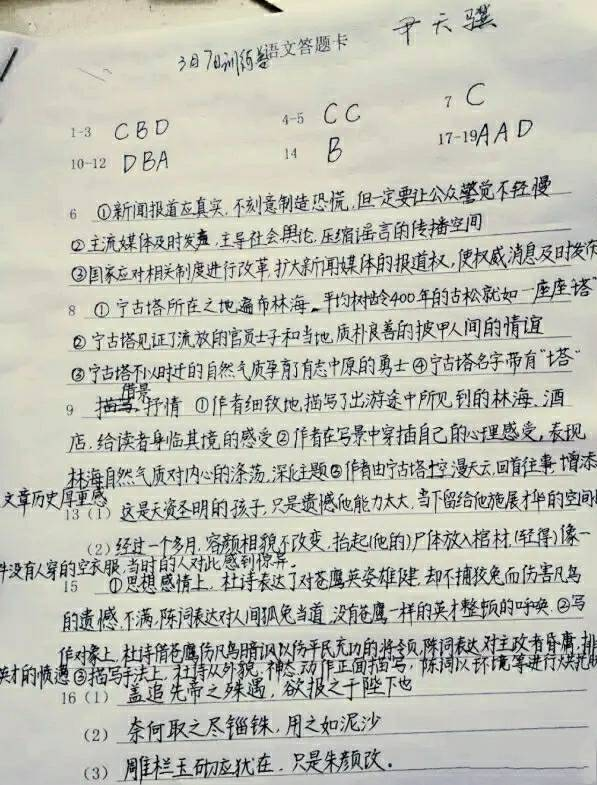 3月7日训练卷语文答题卡 尹天骥
1-3 CBD 4-5 CC 7 C
10-12 DBA 14 B 17-19 AAD
6 ①新闻报道应真实,不刻意制造恐慌,但一定要让公众警觉不轻慢
②主流媒体及时发声,主导社会舆论,压缩谣言的传播空间
③国家应对相关制度进行改革,扩大新闻媒体的报道权,使权威消息及时发
8 ①宁古塔所在之地遍布林海,平均树龄400年的古松就如一座座"塔"
②宁古塔见证了流放的官员士子和当地质朴良善的披甲人间的情谊
③宁古塔不以时迁的自然气质孕育了有志中原的勇士④宁古塔名字带有"塔"
9 借景抒情 ①作者细致地描写了出游途中所见到的林海、酒
店,给读者身临其境的感受②作者在写景中穿插自己的心理感受,表现
林海自然气质对内心的涤荡,深化主题③作者由宁古塔时空漫天云,回首往事,增添
文章历史厚重感
13(1)这是天资圣明的孩子,只是遗憾他能力太大,当下留给他施展才华的空间
(2)经过一个多月,容颜相貌不改变,抬起(他的)尸体放入棺材,(轻得)像一
件没有人穿的空衣服,当时的人对此感到惊异。
15 ①思想感情上,杜诗表达了对苍鹰英姿雄健,却不捕狡兔而伤害凡鸟
的遗憾、不满,陈词表达对人间狐兔当道,没有苍鹰一样的英才整顿的呼唤.②写
作对象上,杜诗借苍鹰伤凡鸟暗讽以伤平民充功的将领,陈词表达对主政者昏庸,排
英才的愤懑③描写手法上,杜诗从外貌、神态、动作正面描写,陈词以环境等进行烘托
16(1)盖追先帝之殊遇,欲报之于陛下也
(2)奈何取之尽锱铢,用之如泥沙
(3)雕栏玉砌应犹在,只是朱颜改。